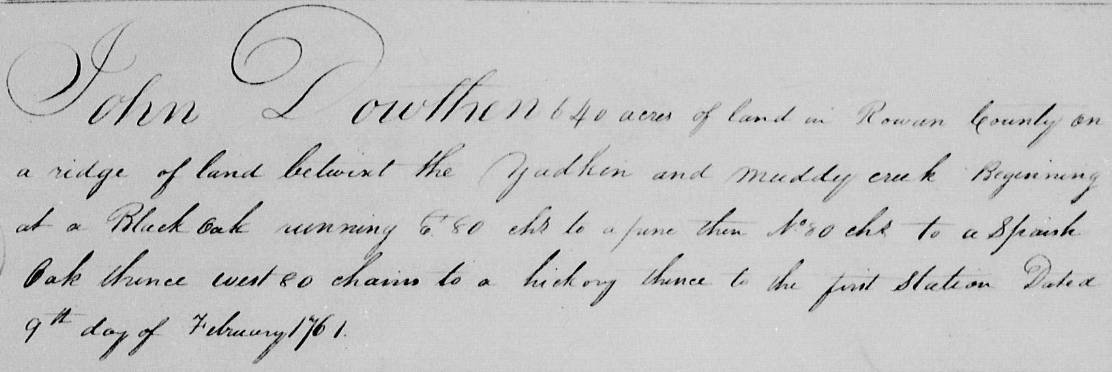 John Dowthen 640 acres of land in Rowan County on
a ridge of land betwixt the Yadkin and Muddy creek Beginning
at a Black Oak running Et 80 chs to a pine then No 80 chs to a Spanish
Oak thence west 80 chains to a hickory thence to the first Station Dated
9th day of February 1761.